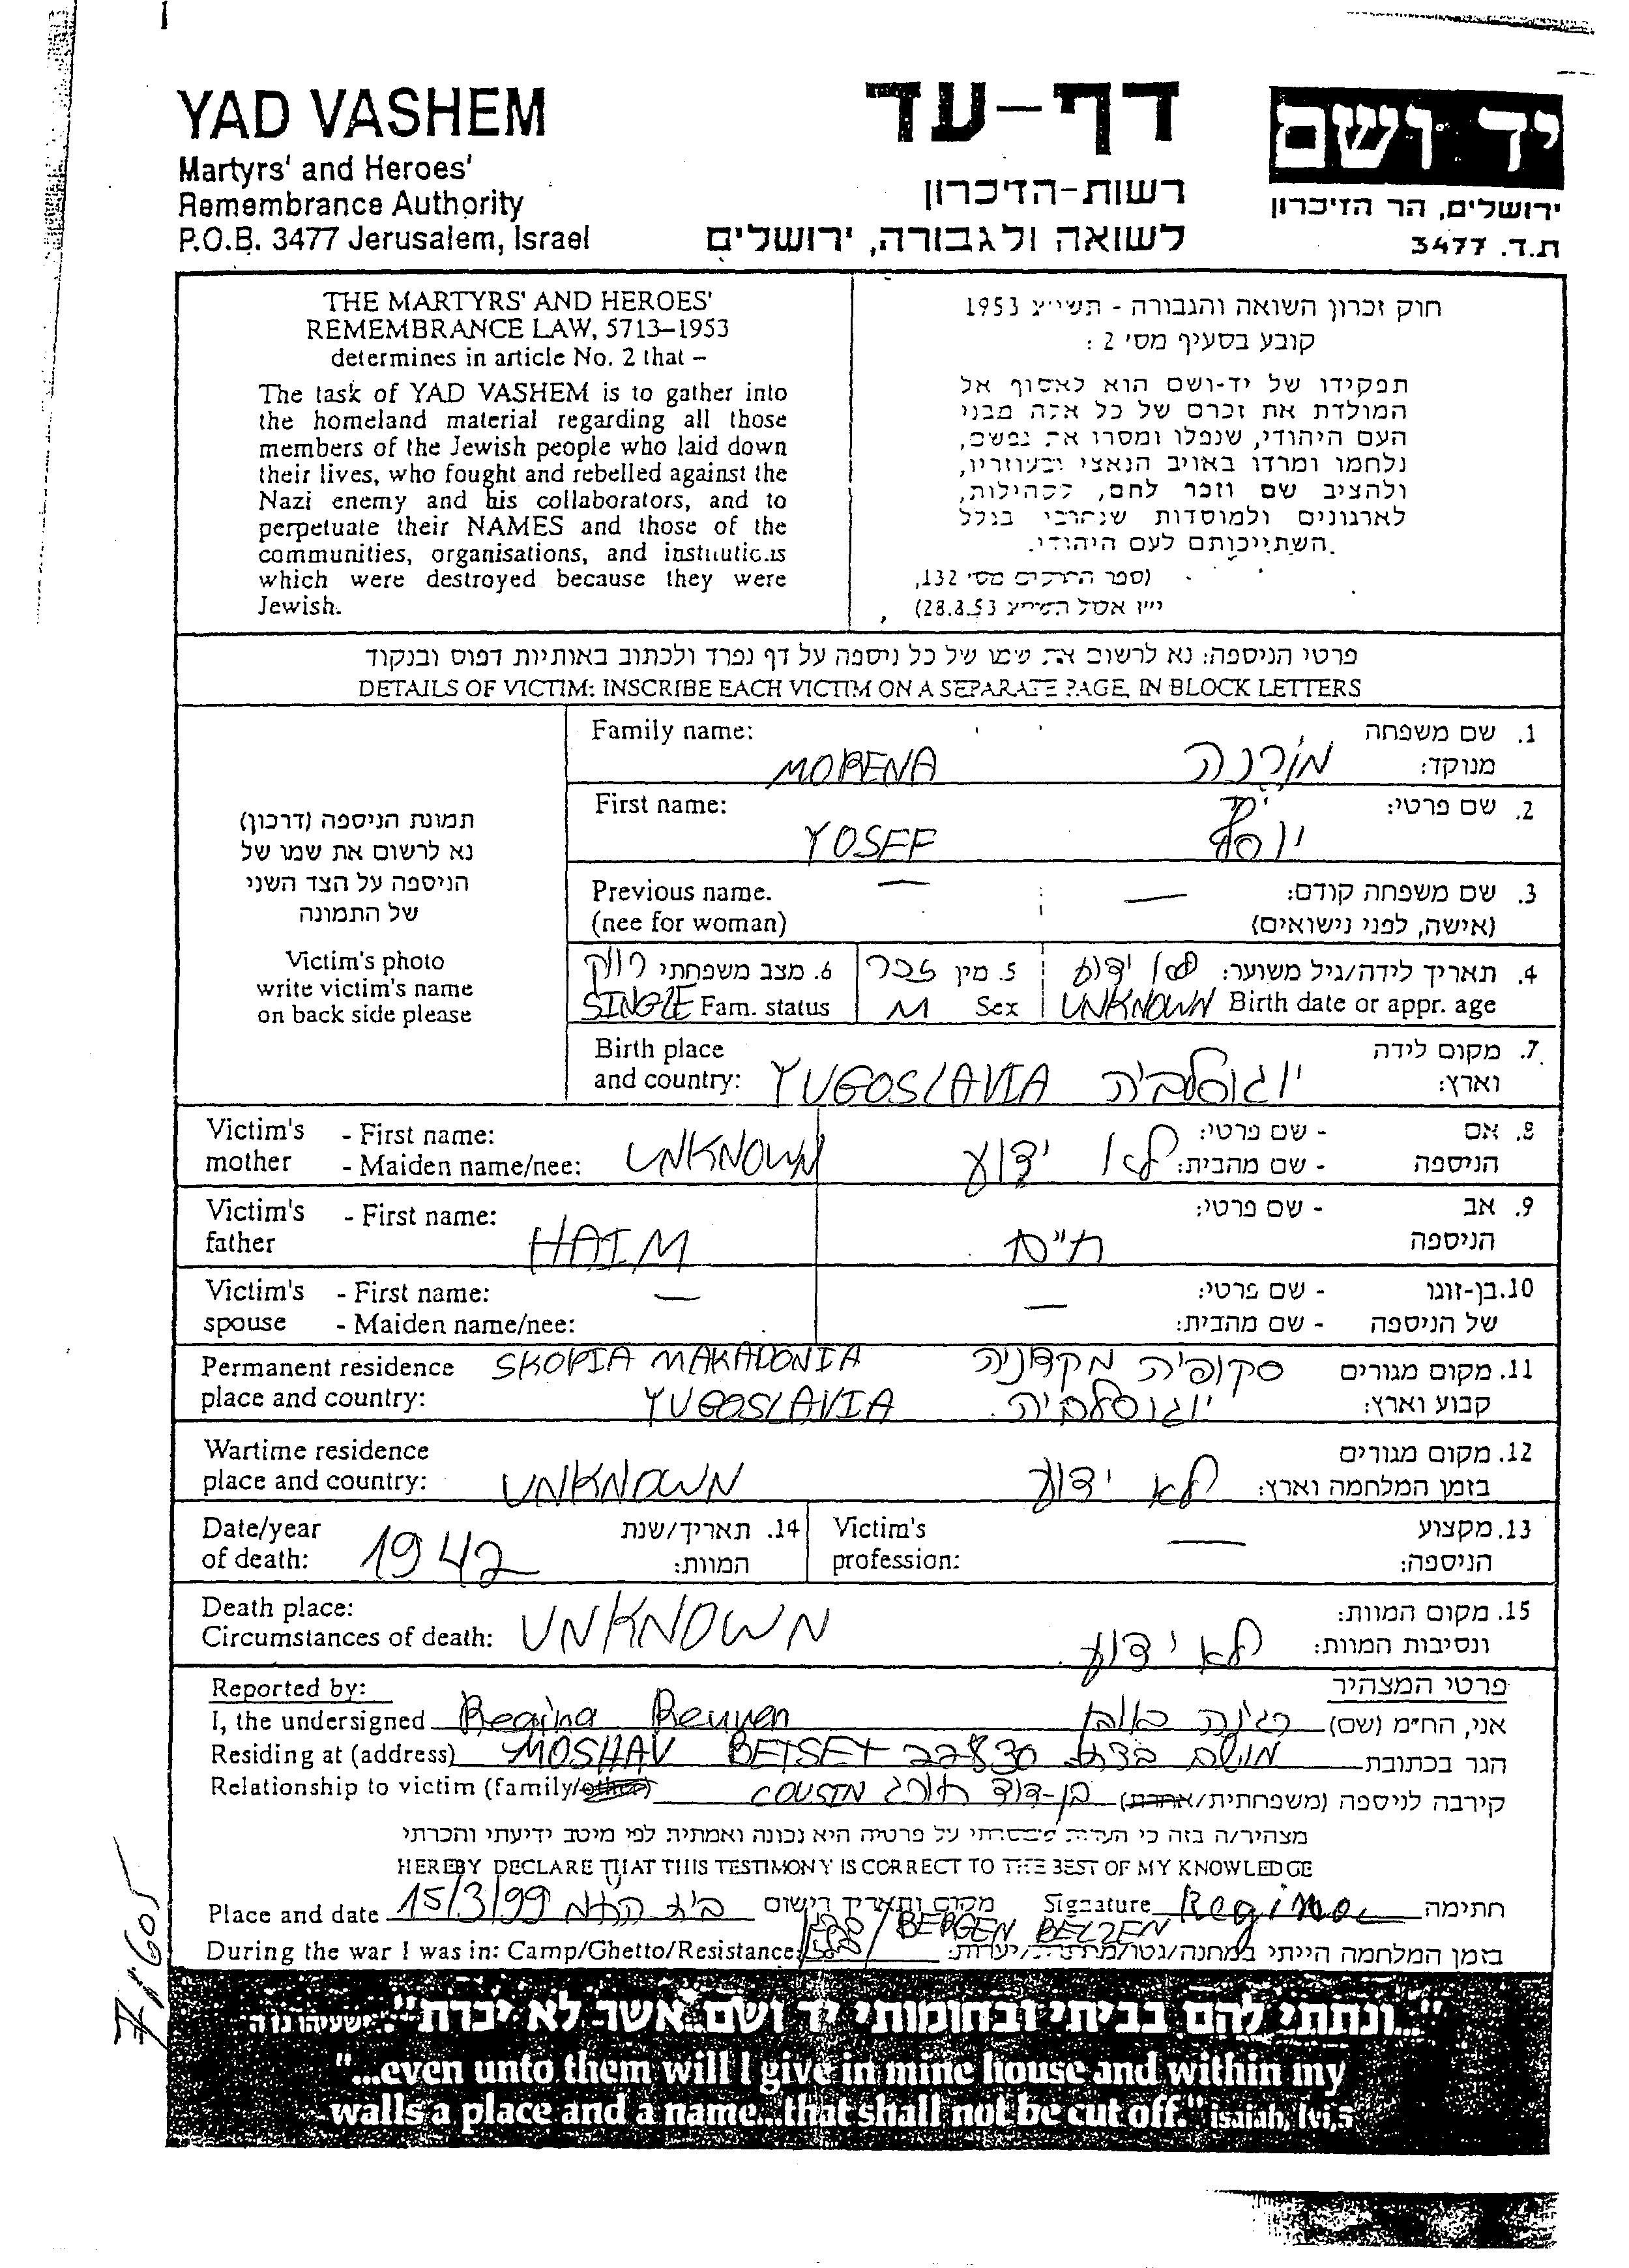 YAD VASHEM
Martyrs' and Heroes'
Remembrance Authority
P.O.B. 3477 Jerusalem, Israel
דף-עד
רשות-הזיכרון
לשואה ולגבורה, ירושלים
יד ושם
ירושלים, הר הזיכרון
ת.ד. 3477
THE MARTYRS' AND HEROES'
REMEMBRANCE LAW, 5713–1953
determines in article No. 2 that –
The task of YAD VASHEM is to gather into
the homeland material regarding all those
members of the Jewish people who laid down
their lives, who fought and rebelled against the
Nazi enemy and his collaborators, and to
perpetuate their NAMES and those of the
communities, organisations, and institutions
which were destroyed because they were
Jewish.
חוק זכרון השואה והגבורה - תשי"ג 1953
קובע בסעיף מס' 2 :
תפקידו של יד-ושם הוא לאסוף אל
המולדת את זכרם של כל אלה מבני
העם היהודי, שנפלו ומסרו את נפשם,
נלחמו ומרדו באויב הנאצי ובעוזריו,
ולהציב שם וזכר להם, לקהילות,
לארגונים ולמוסדות שנחרבו בגלל
השתייכותם לעם היהודי.
(ספר החוקים מס' 132,
י"ז אלול תשי"ג 28.8.53)
פרטי הניספה: נא לרשום את שמו של כל ניספה על דף נפרד ולכתוב באותיות דפוס ובנקוד
DETAILS OF VICTIM: INSCRIBE EACH VICTIM ON A SEPARATE PAGE, IN BLOCK LETTERS
תמונת הניספה (דרכון)
נא לרשום את שמו של
הניספה על הצד השני
של התמונה
Victim's photo
write victim's name
on back side please
Family name:
1. שם משפחה
מנוקד:
MORENA מורנה
First name:
2. שם פרטי:
YOSEF יוסף
Previous name. — — 3. שם משפחה קודם:
(nee for woman) (אישה, לפני נישואים)
4. תאריך לידה/גיל משוער: לא ידוע 5. מין זכר 6. מצב משפחתי רווק
SINGLE Fam. status M Sex UNKNOWN Birth date or appr. age
Birth place 7. מקום לידה
and country: YUGOSLAVIA יוגוסלביה וארץ:
Victim's - First name: - שם פרטי: 8. אם
mother - Maiden name/nee: UNKNOWN לא ידוע - שם מהבית: הניספה
Victim's - First name: - שם פרטי: 9. אב
father HAIM חיים הניספה
Victim's - First name: — — - שם פרטי: 10. בן-זוגו
spouse - Maiden name/nee: - שם מהבית: של הניספה
Permanent residence SKOPIA MAKADONIA סקופיה מקדניה 11. מקום מגורים
place and country: YUGOSLAVIA יוגוסלביה קבוע וארץ:
Wartime residence 12. מקום מגורים
place and country: UNKNOWN לא ידוע בזמן המלחמה וארץ:
Date/year 14. תאריך/שנת Victim's — 13. מקצוע
of death: 1942 המוות: profession: הניספה:
Death place: 15. מקום המוות:
Circumstances of death: UNKNOWN לא ידוע ונסיבות המוות:
Reported by: פרטי המצהיר
I, the undersigned Regina Reuven רגינה ראובן אני, הח"מ (שם)
Residing at (address) MOSHAV BETSET 22830 מושב בצת הגר בכתובת
Relationship to victim (family/other) COUSIN בן-דוד חורג קירבה לניספה (משפחתית/אחרת)
מצהיר/ה בזה כי העדות שמסרתי על פרטיה היא נכונה ואמתית לפי מיטב ידיעתי והכרתי
HEREBY DECLARE THAT THIS TESTIMONY IS CORRECT TO THE BEST OF MY KNOWLEDGE
Place and date 15/3/99 מקום ותאריך רישום Signature Regina חתימה
BERGEN BELZEN
During the war I was in: Camp/Ghetto/Resistance: בזמן המלחמה הייתי במחנה/גטו/מחתרת/יערות:
71605
"...ונתתי להם בביתי ובחומותי יד ושם...אשר לא יכרת". ישעיהו נו ה
"...even unto them will I give in mine house and within my
walls a place and a name...that shall not be cut off." isaiah, lvi,5